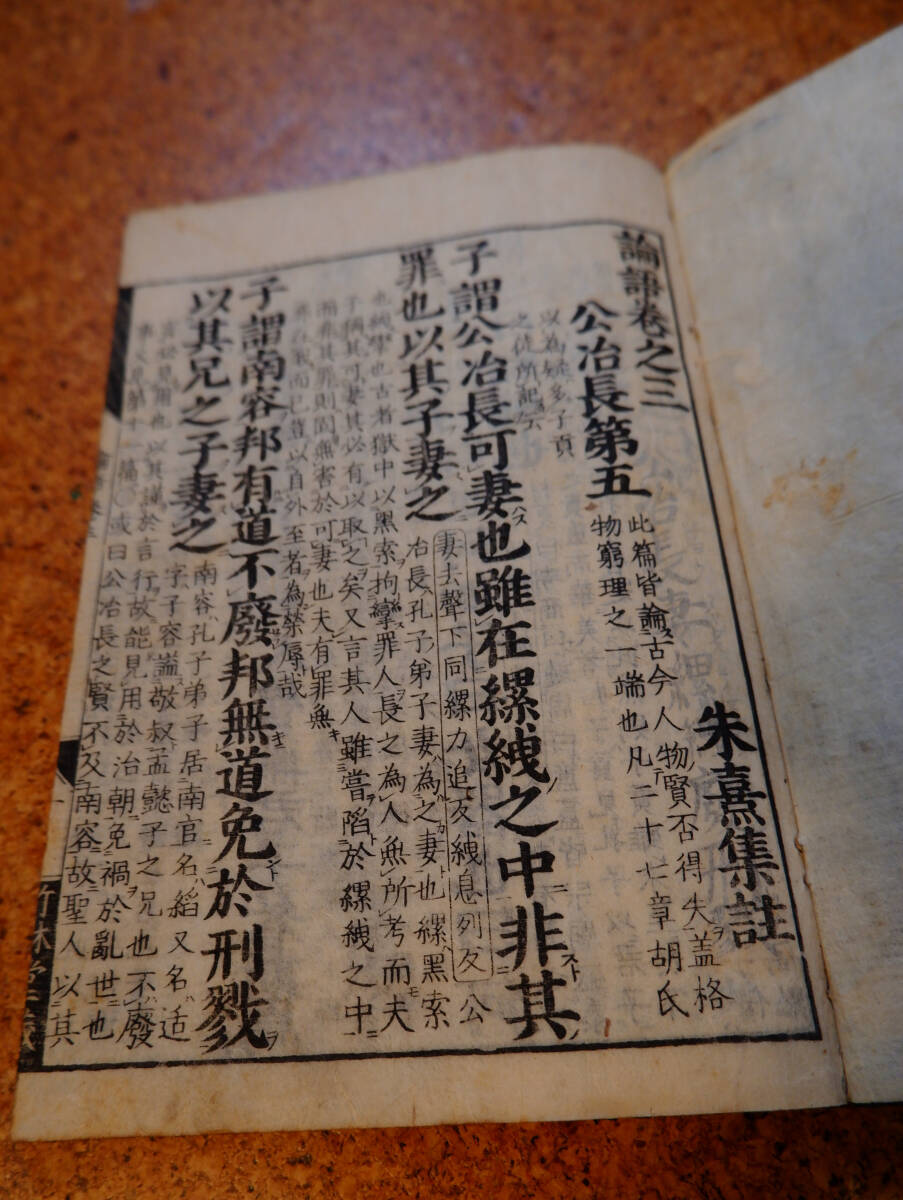 論語卷之三
朱熹集註
公冶長第五
此篇皆論古今人物賢否得失蓋格
物窮理之一端也凡二十七章胡氏
以為疑多子貢
之徒所記云
子謂公冶長可妻也雖在縲絏之中非其
罪也以其子妻之
妻去聲下同縲力追反絏息列反公
冶長孔子弟子妻為之妻也縲黑索
也絏攣也古者獄中以黑索拘攣罪人長之為人無所考而夫
子稱其可妻其必有以取之矣又言其人雖嘗陷於縲絏之中
而非其罪則固無害於可妻也夫有罪無
罪在我而已豈以自外至者為榮辱哉
子謂南容邦有道不廢邦無道免於刑戮
以其兄之子妻之
南容孔子弟子居南宮名縚又名适
字子容謚敬叔孟懿子之兄也不廢
言必見用也以其謹於言行故能見用於治朝免禍於亂世也
事又見第十一篇○或曰公冶長之賢不及南容故聖人以其